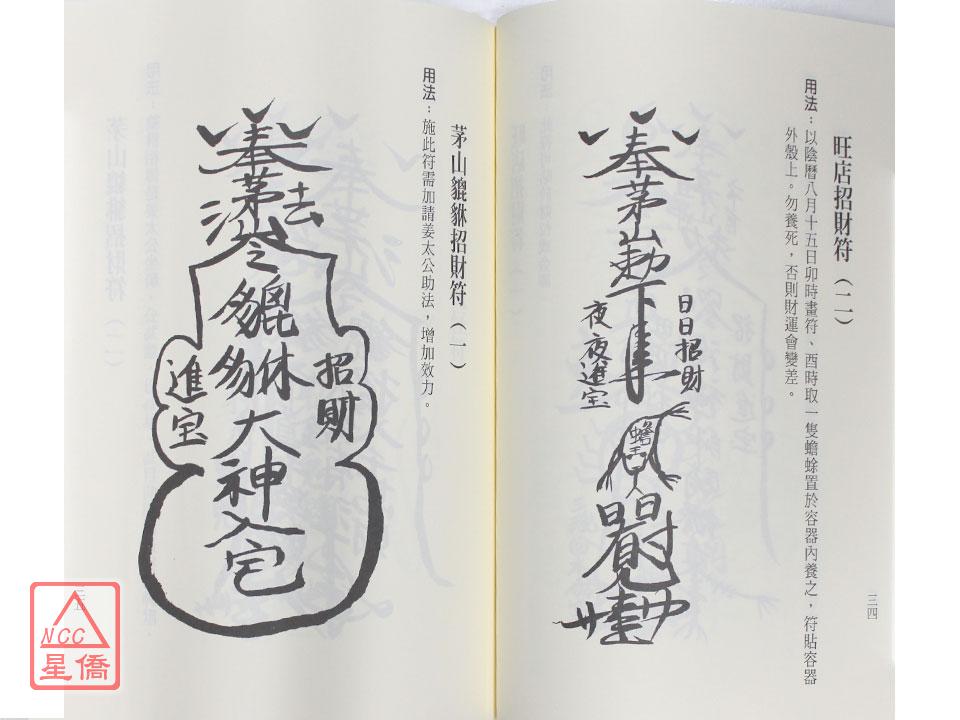 旺店招財符（二）
用法：以陰曆八月十五日卯時畫符、酉時取一隻蟾蜍置於容器內養之，符貼容器
外殼上。勿養死，否則財運會變差。
奉茅山勅下
日日招財
夜夜進宝
蟾王
三四
茅山貔貅招財符（一）
用法：施此符需加請姜太公助法，增加效力。
奉茅山法令貔貅大神入宅
招財
進宝
三五
NCC
星僑